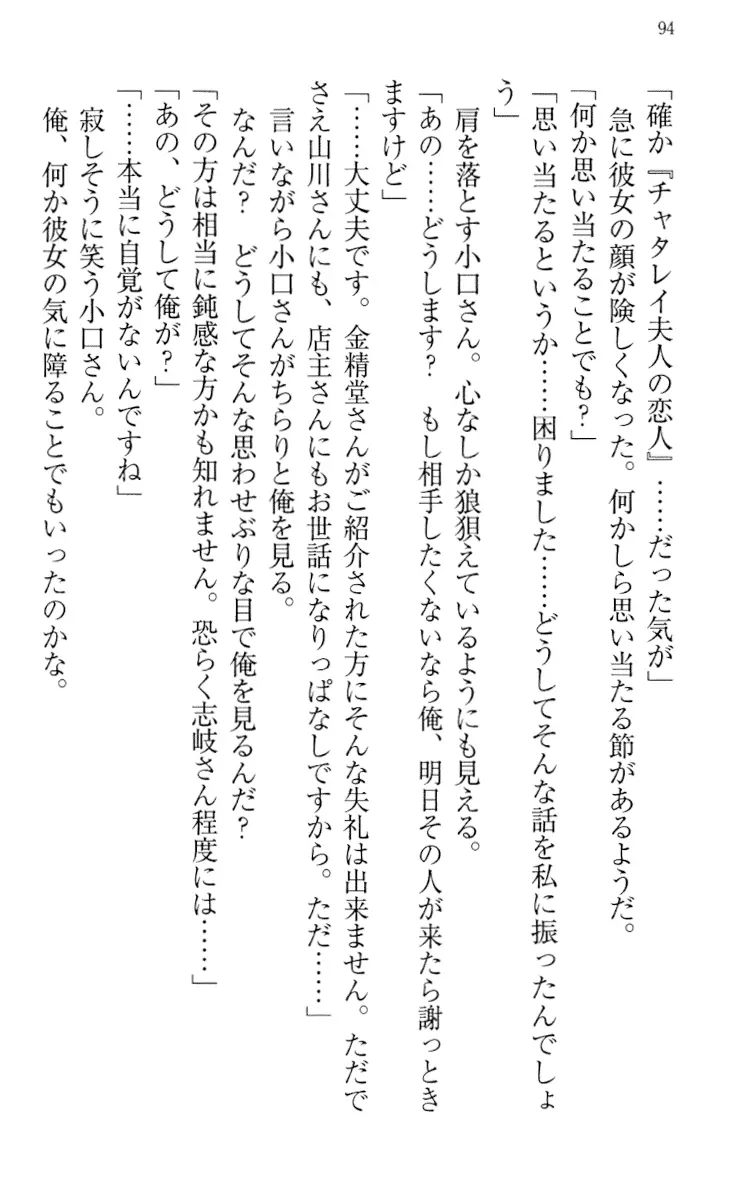 94
「確か『チャタレイ夫人の恋人』……だった気が」
急に彼女の顔が険しくなった。何かしら思い当たる節があるようだ。
「何か思い当たることでも?」
「思い当たるというか……困りました……どうしてそんな話を私に振ったんでしょ
う」
肩を落とす小口さん。心なしか狼狽えているようにも見える。
「あの……どうします? もし相手したくないなら俺、明日その人が来たら謝っとき
ますけど」
「……大丈夫です。金精堂さんがご紹介された方にそんな失礼は出来ません。ただで
さえ山川さんにも、店主さんにもお世話になりっぱなしですから。ただ……」
言いながら小口さんがちらりと俺を見る。
なんだ? どうしてそんな思わせぶりな目で俺を見るんだ?
「その方は相当に鈍感な方かも知れません。恐らく志岐さん程度には……」
「あの、どうして俺が?」
「……本当に自覚がないんですね」
寂しそうに笑う小口さん。
俺、何か彼女の気に障ることでもいったのかな。